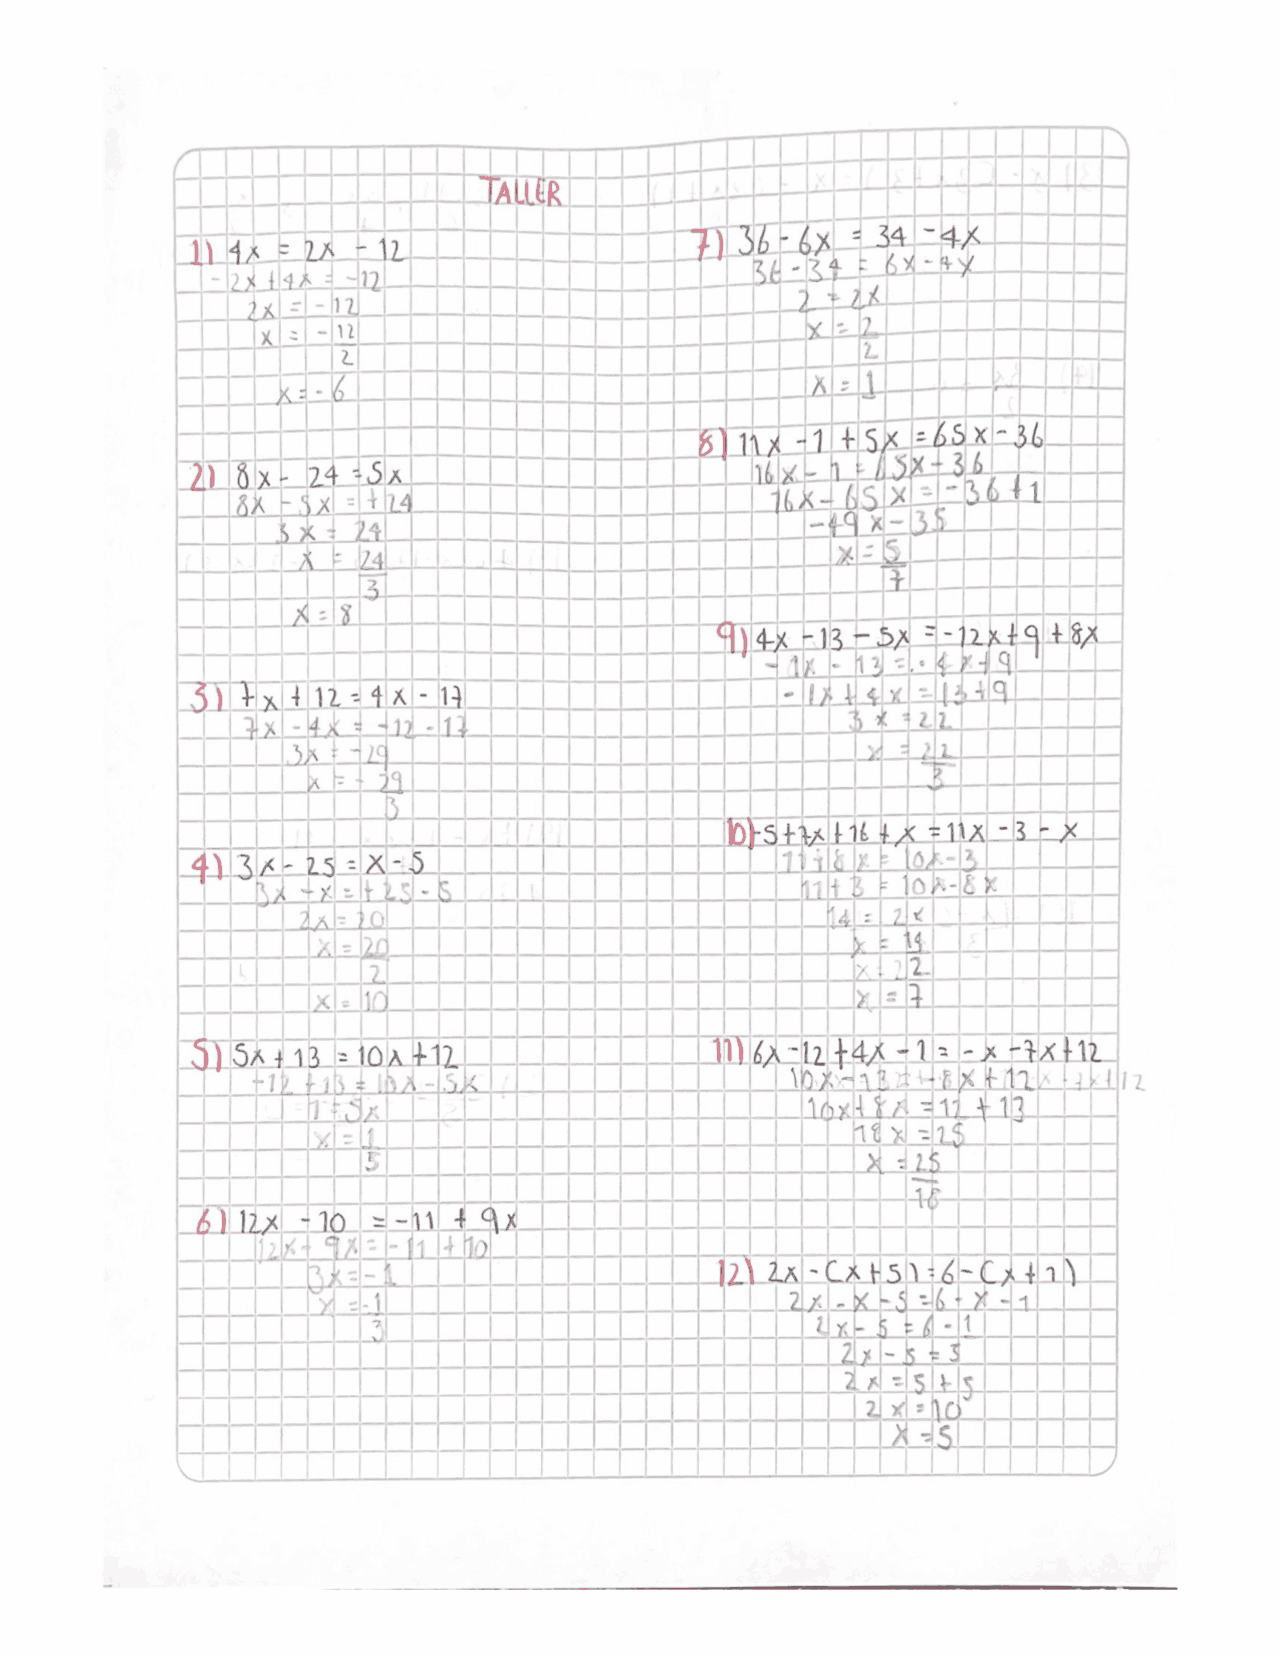 TALLER
1) 4x = 2x - 12
- 2x + 4x = -12
2x = -12
x = - 12
2
x = - 6
2) 8x - 24 = 5x
8x - 5x = +24
3x = 24
x = 24
3
x = 8
3) 7x + 12 = 4x - 17
7x - 4x = -12 - 17
3x = -29
x = - 29
3
4) 3x - 25 = x - 5
3x - x = +25 - 5
2x = 20
x = 20
2
x = 10
5) 5x + 13 = 10x + 12
-12 + 13 = 10x - 5x
1 = 5x
x = 1
5
6) 12x - 10 = -11 + 9x
12x - 9x = -11 + 10
3x = -1
x = -1
3
7) 36 - 6x = 34 - 4x
36 - 34 = 6x - 4x
2 = 2x
x = 2
2
x = 1
8) 11x - 1 + 5x = 65x - 36
16x - 1 = 65x - 36
16x - 65x = -36 + 1
-49x - 35
x = 5
7
9) 4x - 13 - 5x = -12x + 9 + 8x
- 1x - 13 = - 4x + 9
- 1x + 4x = 13 + 9
3x = 22
x = 22
3
10) -5 + 7x + 16 + x = 11x - 3 - x
11 + 8x = 10x - 3
11 + 3 = 10x - 8x
14 = 2x
x = 14
2
x = 7
11) 6x - 12 + 4x - 1 = - x - 7x + 12
10x - 13 = - 8x + 12
10x + 8x = 12 + 13
18x = 25
x = 25
18
12) 2x - (x + 5) = 6 - (x + 1)
2x - x - 5 = 6 - x - 1
2x - 5 = 6 - 1
2x - 5 = 5
2x = 5 + 5
2x = 10
x = 5